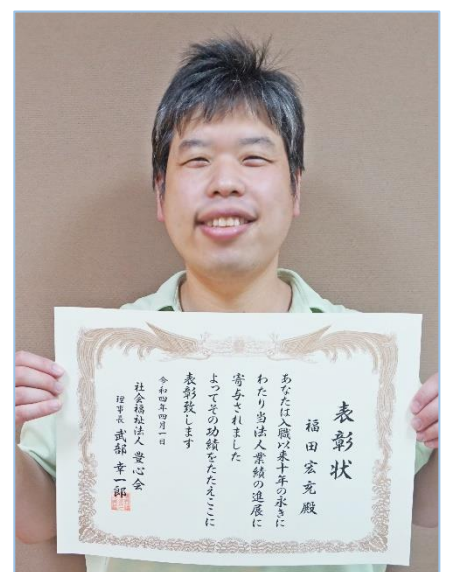 表彰状
福田宏充殿
あなたは入職以来十年の永きに
わたり当法人業績の進展に
寄与されました
よってその功績をたたえここに
表彰致します
令和四年四月一日
社会福祉法人 豊心会
理事長 武部幸一郎